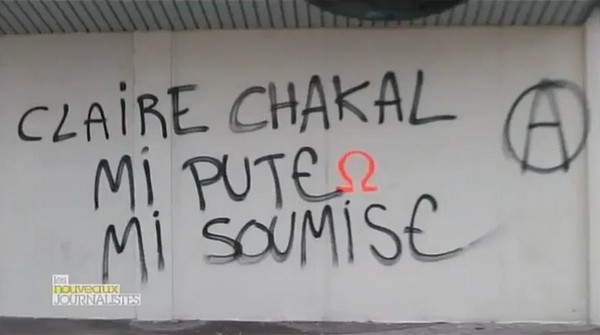 CLAIRE CHAKAL Ⓐ
Mi PUTE Ω
Mi SOUMISE
les
nouveaux
JOURNALISTES